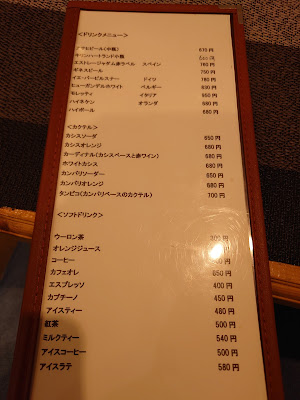 <ドリンクメニュー>
アサヒビール(中瓶) 670円
キリンハートランド小瓶
エストレージャダム赤ラベル スペイン 760円
ギネスビール 750円
イエーバーピルスナー ドイツ 780円
ヒューガンデルホワイト ベルギー 930円
モレッティ イタリア 950円
ハイネケン オランダ 680円
ハイボール 680円
<カクテル>
カシスソーダ 650円
カシスオレンジ 680円
カーディナル(カシスベースと赤ワイン) 680円
ホワイトカシス 680円
カンパリソーダー 650円
カンパリオレンジ 680円
ケンピコ(カンパリベースのカクテル) 700円
<ソフトドリンク>
ウーロン茶 300円
オレンジジュース
コーヒー
カフェオレ 550円
エスプレッソ 400円
カプチーノ 450円
アイスティー 480円
紅茶 500円
ミルクティー 540円
アイスコーヒー 500円
アイスラテ 580円